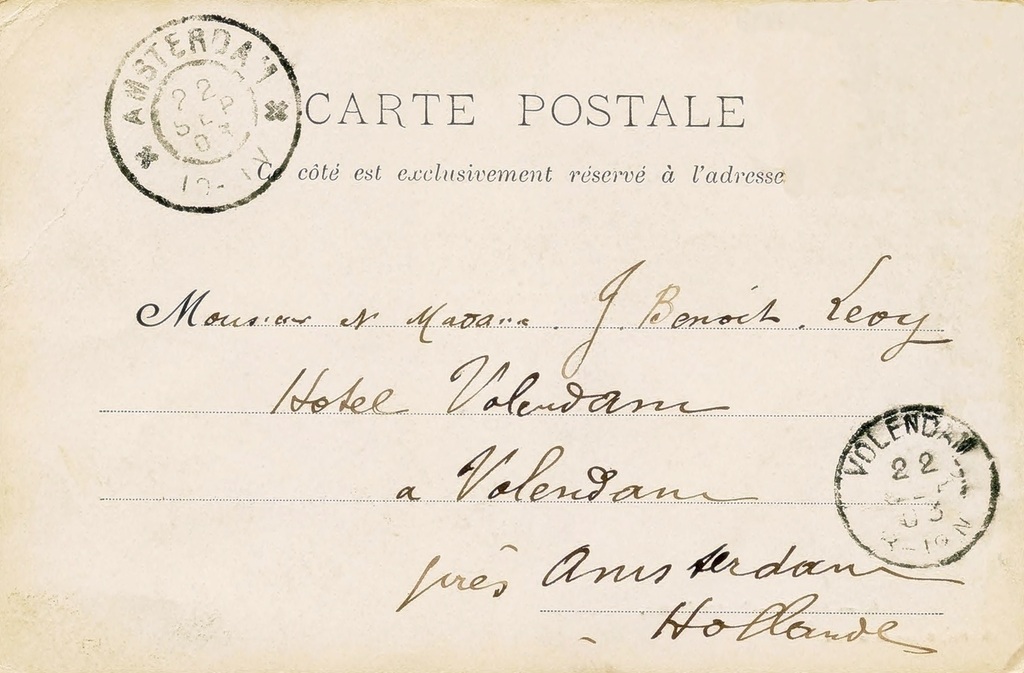 AMSTERDAM
22
SEP
03
CARTE POSTALE
Ce côté est exclusivement réservé à l'adresse
Monsieur et Madame J. Benoit Levy
Hotel Volendam
VOLENDAM
22
03
a Volendam
près Amsterdam
Hollande